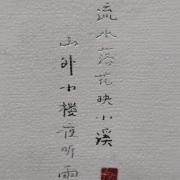 流水落花映小溪
山外小楼夜听雨